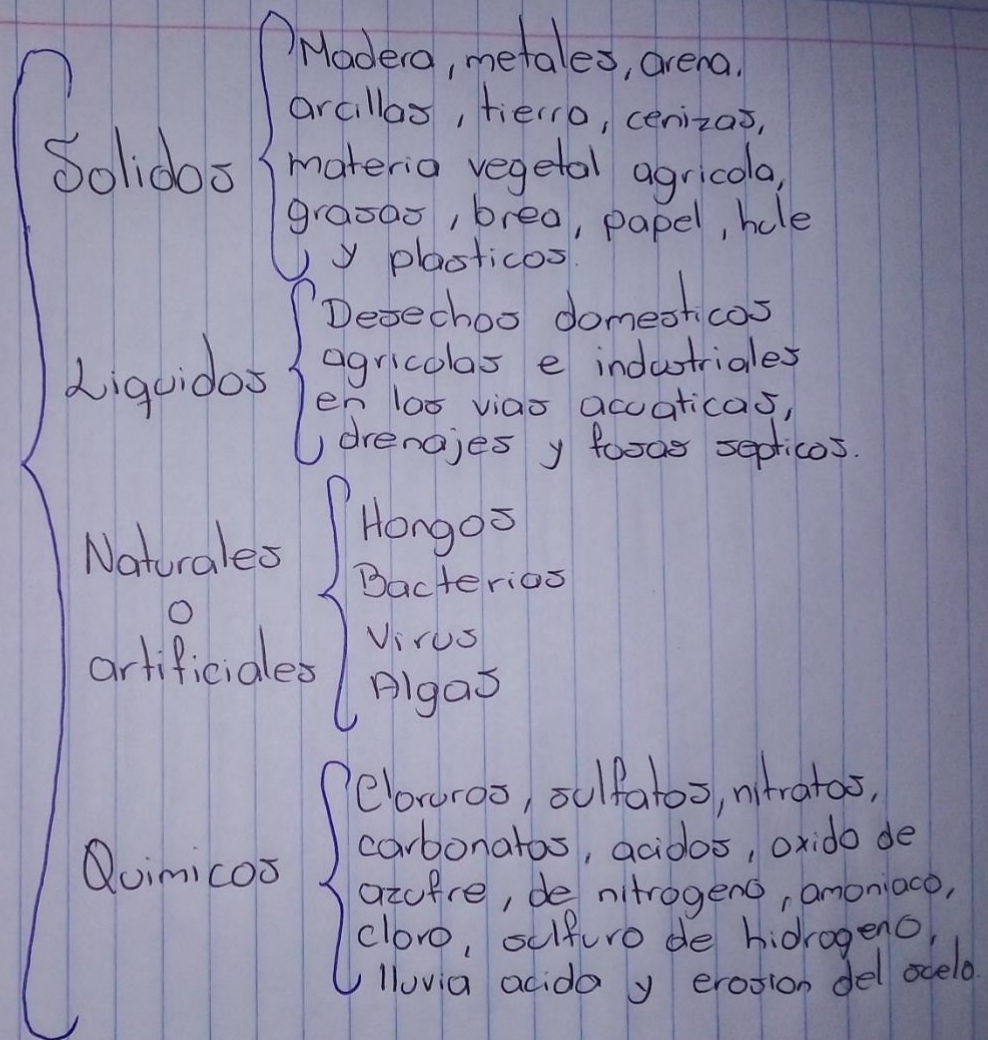 Madera, metales, arena.
arcillas, tierra, cenizas,
Solidos
materia vegetal agricola,
grasas, brea, papel, hule
y plasticos.
Desechos domesticos
Liquidos
agricolas e industriales
en las vias acuaticas,
drenajes y fosas septicos.
Naturales
o
artificiales
Hongos
Bacterias
Virus
Algas
Quimicos
Cloruros, sulfatos, nitratos,
carbonatos, acidos, oxido de
azufre, de nitrogeno, amoniaco,
cloro, sulfuro de hidrogeno,
lluvia acida y erosion del suelo.